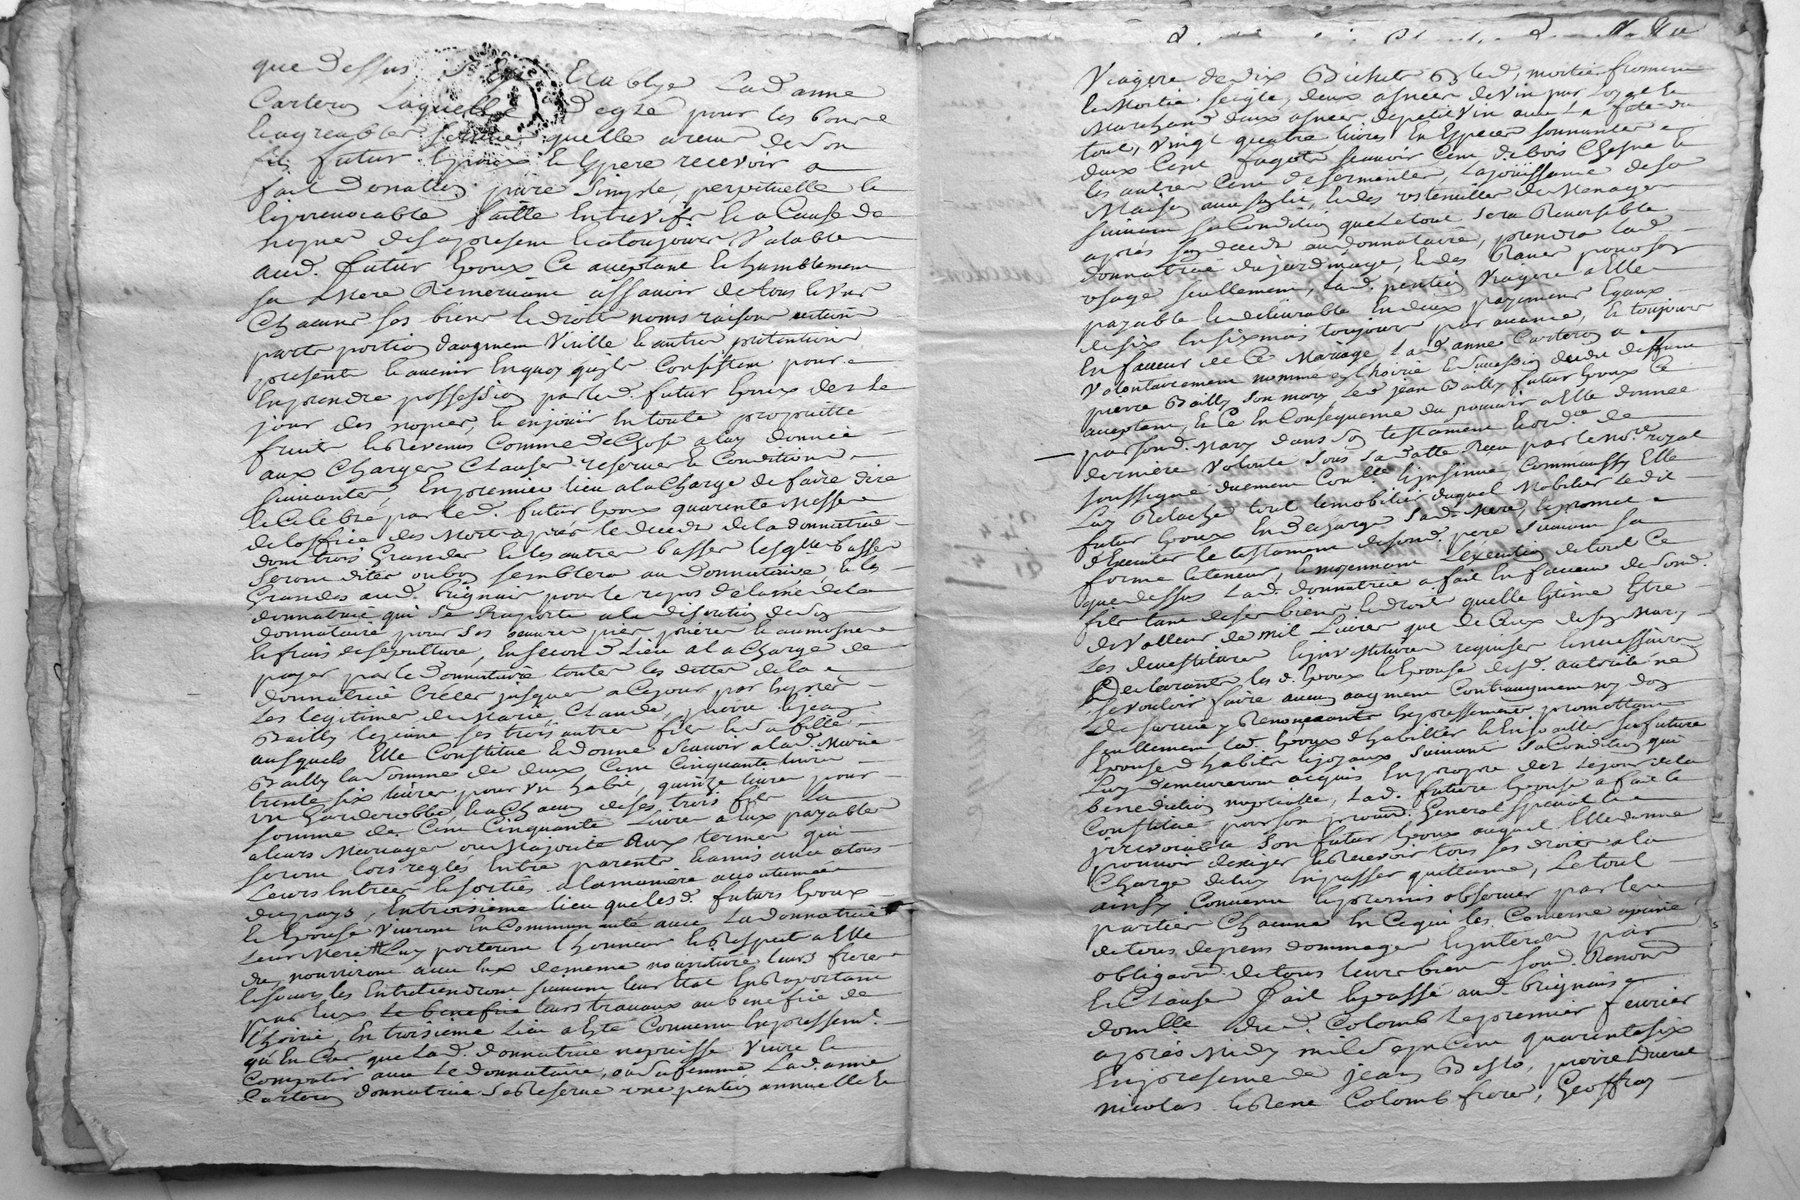 que dessus S'est Etablye Lad. anne
Carteron Laquelle de gré pour les bons
et agreables services quelle a receu de son
fils futur Epoux et Espere recevoir a
fait Donation pure Simple, perpetuelle et
irrevocable faitte Entre vifs et a Cause de
nopces desapresent et atoujours Valable
aud. futur Epoux Ce acceptant et humblement
sa Mere Remerciant assavoir de tous et uns
Chacuns ses biens et droits noms raisons actions
parts portion daugment Virille et autres pretentions
presents et avenir En quoy qu'ils Consistent pour
En prendre possession par led. futur Epoux dez le
jour des nopces, et en jouir En toute proprieté
fruits et Revenus Comme de Chose a luy donnée
aux Charges Clauses reserves et Conditions
suivantes, En premier lieu a la Charge de faire dire
et Celebré par led. futur Epoux quarente Messes
de loffice des Morts apres le deceds de la donnatrice
dont trois Grandes et les autres basses lesqlles basses
seront dites ou bon semblera au Donnataire, et les
Grandes aud. brignais pour le repos de lame de la
donnatrice qui se Raporte a la discretion de son
donnataire pour ses oeuvres pies prieres et aumosnes
et frais de sepulture, En second Lieu a la Charge de
payer par le Donnataire toutes les dettes de la
donnatrice Créées jusques a Ce jour par Exprés
Les legitimes de Marie, Claude, pierre et jean
Bailly lejeune ses trois autres fils et sa fille
ausquels Elle Constitue et donne scavoir a lad. Marie
Bailly la somme de deux Cent Cinquante livres
trente six livres pour un habit, quinze livres pour
un Garderobbe, et a Chacun de ses trois fils La
somme de Cent Cinquante Livres a Eux payable
a leurs Mariages ou Majorité aux termes qui
seront lors reglés Entre parents et amis avec atous
Leurs Entrées et sorties a la maniere accoutumée
du pays, En troisieme lieu que lesd. futurs Epoux
et Epouse vivront En Communauté avec La donnatrice
Leur Mere # Luy porteront lhonneur et Respect a Elle
du, nourriront avec Eux de meme nourriture leurs freres
et soeurs, les Entretiendront suivant leur Etat En Raportant
par Eux le benefice leurs travaux au benefice de
l'hoirie, En troisieme Lieu a Eté Convenu Expressemt.
qu'En Cas que Lad. donnatrice ne puisse Vivre et
Compatir avec Le donnataire, ou sa femme Lad. anne
Carteron donnatrice se Reserve une pention annuelle et
Viagere de dix Bichets Bled, moitié froment
et Moitié seigle, deux asnées de Vin pur Loyal et
Marchand deux asnées de petit Vin avec La futs du
tout, vingt quatre livres En Especes sonnantes
deux Cent fagots scavoir Cent de bois Chesne et
les autres Cent de serments, La jouissance de sa
Maison aussy, et des ustenciles de Menage
suivant sa Condition que Letout sera Reversible
après son deceds au donnataire, prendra lad.
donnatrice du jardinage, et des Raves pour son
usage seullement, Lad. pention Viagere a Elle
payable et delivrable En deux payements Egaux
de six En six mois toujours par avance, et toujours
En faveur de Ce Mariage Lad. anne Carteron a
Volontairement nommé En l'hoirie et succession dudit deffunt
pierre Bailly son mary Led. jean Bailly futur Epoux Ce
acceptant, et Ce En Consequence du pouvoir a Elle donnée
par sond. Mary dans son testament et ord.ce de
derniere volonté sous sa datte Receu par le no.re royal
soussigné duement Conllé et insinué, Comme aussy Elle
Luy Relache tout le mobilier duquel Mobilier le dit
futur Epoux En Decharge Sad. Mere, et promet
d'Executer Le testament de sond. pere suivant sa
forme et teneur, et moyennant L'execution de tout Ce
que dessus Lad. donnatrice a fait En faveur de sond.
fils tant de ses biens et droits quelle Estime Etre
de Valleur de mil Livres que de Ceux de son Mary
Les devestitures et investitures requises et necessaires
Declarants les d. Epoux et Epouse desd. autorités ne
se vouloir faire aucun augment Contraugment ny don
de survie y Renonceants Expressement promettant
seullement led. Epoux d'habiller et Enjoailler sa future
Epouse d'habits et joyaux suivant sa Condition qui
Luy demeureront acquis En propre dez Lejour de la
benediction nuptialle, Lad. future Epouse a fait et
Constitué pour son procur. General special et
irrevocable son futur Epoux auquel Elle donne
pouvoir d'exiger et Recevoir tous ses droits a la
Charge de luy En passer quittance, Le tout
ainsy Convenu et promis observer par les
parties Chacune En Ce qui les Concerne a peine
de tous depens dommages et interets par
obligaon. de tous leurs biens soud. Renond.
et Clauses fait et passé aud. brignais
domille dud. Colomb Le premier fevrier
après Midy mil sept Cent quarante six
En presence de jean Besso, pierre Ducret
nicolas et René Colomb freres, Geoffray